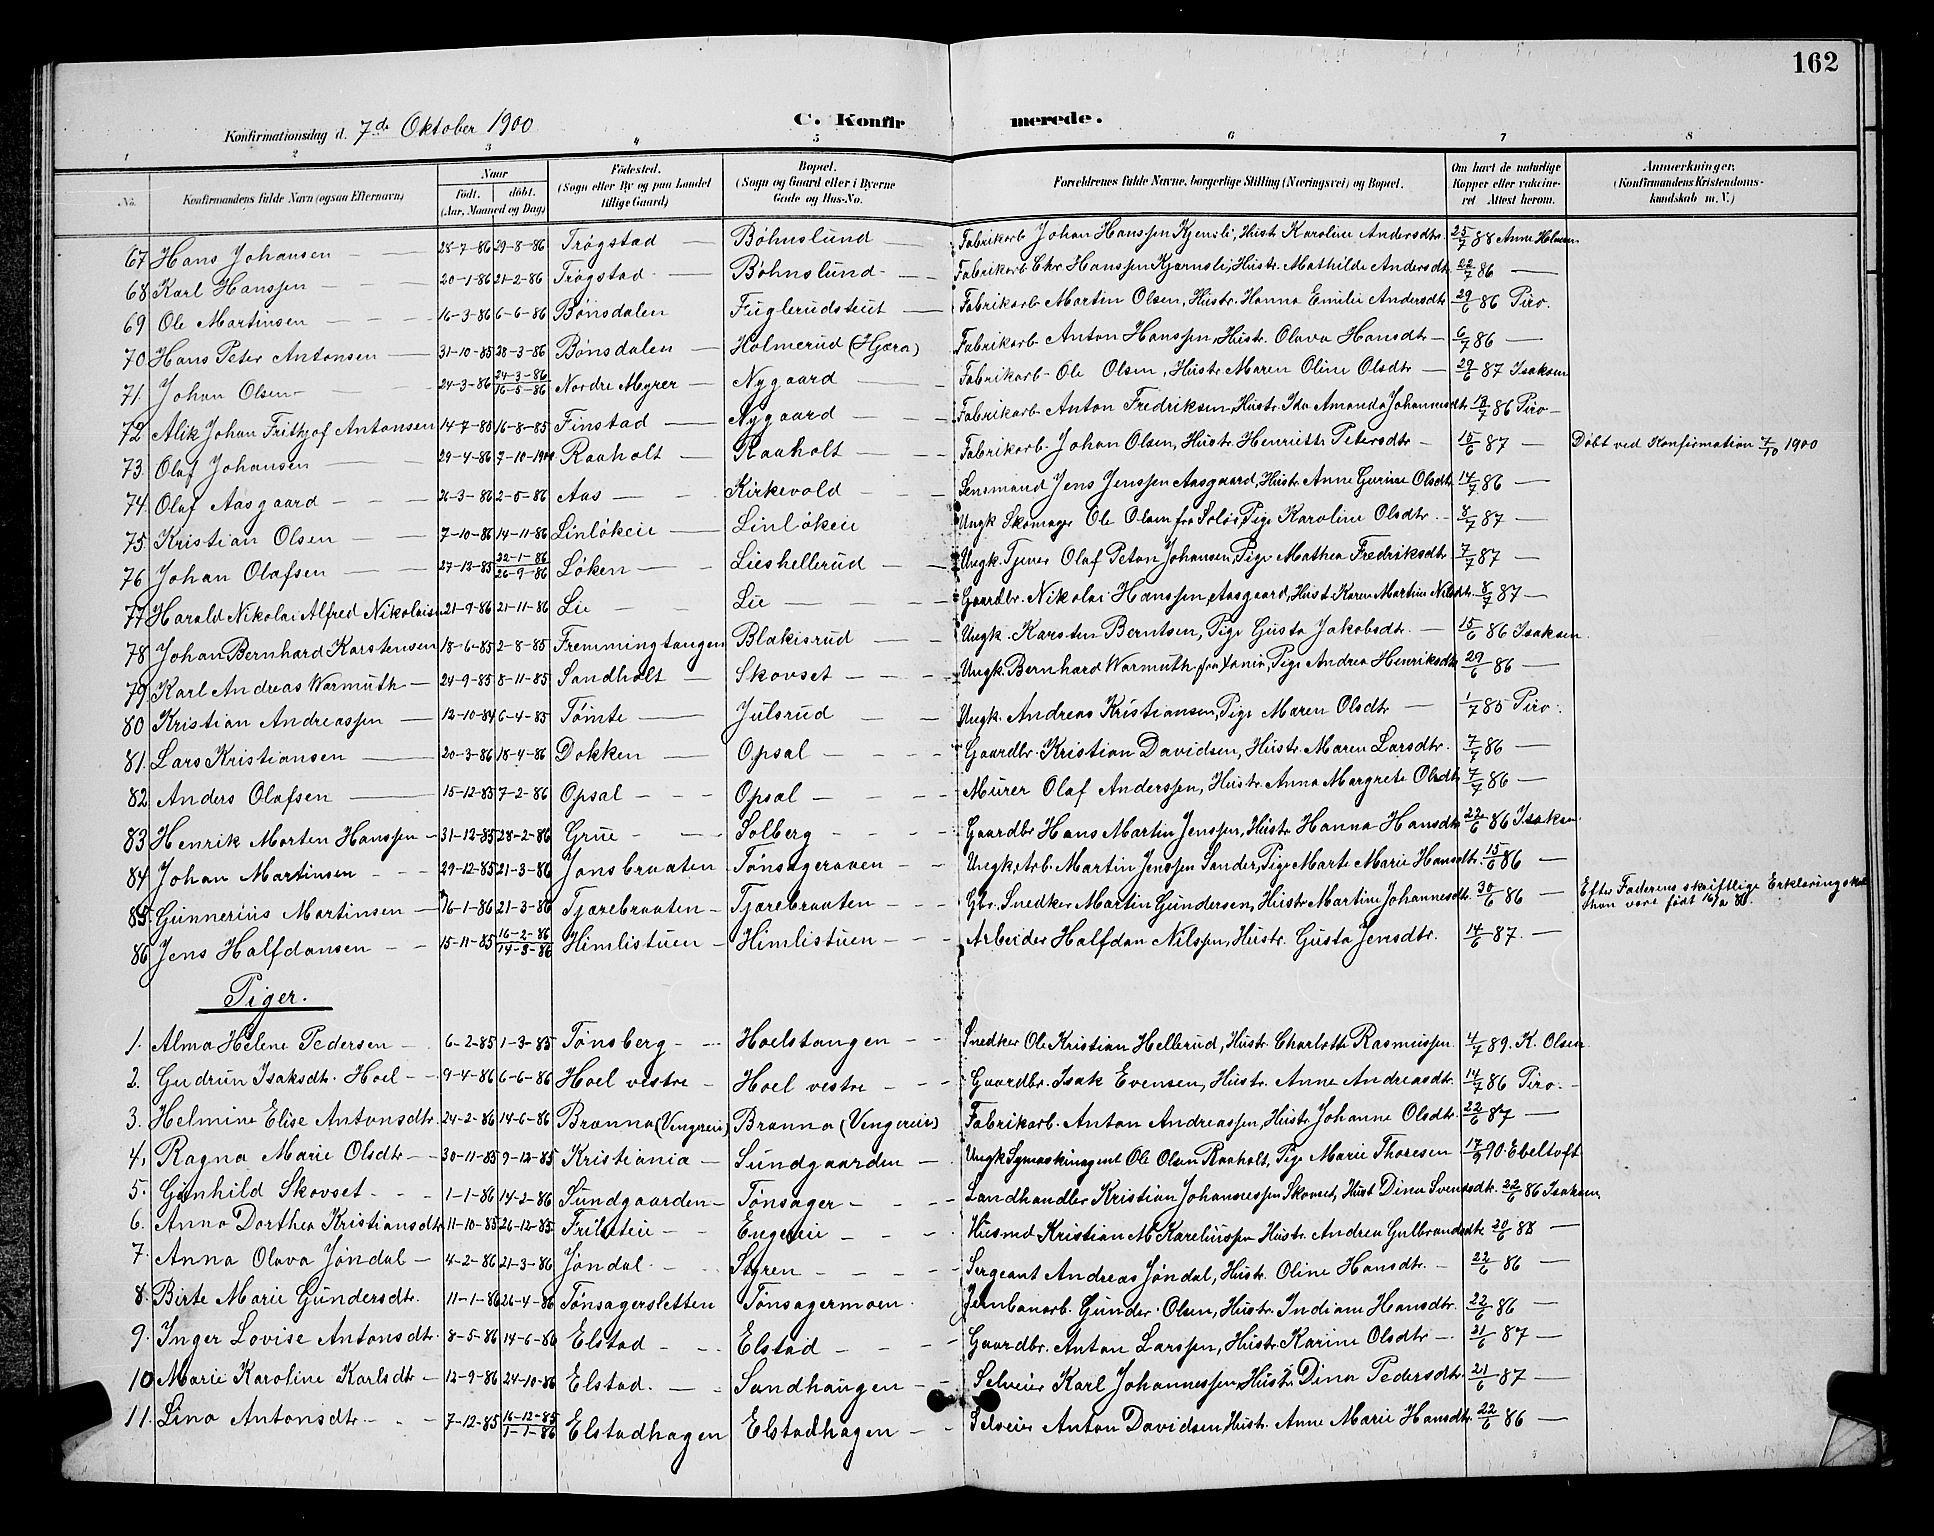 162
Konfirmationsdag d. 7de Oktober 1900 C. Konfirmerede.
1 2 3 4 5 6 7 8
No. Konfirmandens fulde Navn (ogsaa Efternavn) Naar født. døbt. (Aar, Maaned og Dag) Fødested. (Sogn eller By og paa Landet tillige Gaard) Bopæl. (Sogn og Gaard eller i Byerne Gade og Hus-No. Forældrenes fulde Navne, borgerlige Stilling (Næringsvei) og Bopæl. Om havt de naturlige Kopper eller vakcineret Attest herom. Anmærkninger. (Konfirmandens Kristendomskundskab m. V.)
67 Hans Johansen 28-7-86 29-8-86 Trøgstad Bøhnslund Fabrikarb. Johan Hanssen Kjensli, Hustr. Karoline Andersdtr. 25/7 88 Anne Holmsen
68 Karl Hanssen 20-1-86 21-2-86 Trøgstad Bøhnslund Fabrikarb. Chr. Hanssen Kjærnsli, Hustr. Mathilde Andersdtr. 22/7 86 —
69 Ole Martinsen 16-3-86 6-6-86 Bønsdalen Fuglerudsteut Fabrikarb. Martin Olsen, Hustr. Hanna Emilie Andersdtr. 29/6 86 Piro.
70 Hans Peter Antonsen 31-10-85 28-3-86 Bønsdalen Holmerud (Hjera) Fabrikarb. Anton Hanssen, Hustr. Olava Hansdtr. 6/7 86 —
71. Johan Olsen 24-3-86 24-3-86 16-5-86 Nordre Myrer Nygaard Fabrikarb. Ole Olsen, Hustr. Maren Oline Olsdtr. 29/6 87 Isaksen
72 Alik Johan Frithjof Antonsen 14-7-85 16-8-85 Finstad Nygaard Fabrikarb. Anton Fredriksen, Hustr. Ida Amanda Johannesdtr. 13/7 86 Piro
73. Olaf Johansen 29-4-86 7-10-1900 Raaholt Raaholt Fabrikarb. Johan Olsen, Hustr. Henriette Petersdtr. 15/6 87 — Døbt ved Konfirmation 7/10 1900
74. Olaf Aasgaard 26-3-86 2-5-86 Aas Kirkevold Lensmand Jens Jenssen Aasgaard, Hustr. Anne Gurine Olsdtr. 14/7 86 —
75. Kristian Olsen 7-10-86 14-11-86 Linløkeie Linløkeie Ungk. Skomager Ole Olsen fra Soløs, Pige Karoline Olsdtr. 8/7 87 —
76 Johan Olafsen 27-12-85 22-1-86 26-9-86 Løken Lieshellerud Ungk. Tjener Olaf Petan Johansen, Pige Mathea Fredriksdtr. 7/7 87 —
77 Harald Nikolai Alfred Nikolaisen 21-9-86 21-11-86 Lie Lie Gaardbr. Nikolai Hanssen Aasgaard, Hust. Karen Martine Nilsdtr. 8/7 87 —
78. Johan Bernhard Karstensen 18-6-85 2-8-85 Fremmingtangen Blakisrud Ungk. Karsten Berntsen, Pige Gusta Jakobsdtr. 15/6 86 Isaksen
79. Karl Andreas Warmuth 24-9-85 8-11-85 Sandholt Skovset Ungk. Bernhard Warmuth fra Xania, Pige Andrea Henriksdtr. 29/6 86 —
80 Kristian Andreassen 12-10-84 6-4-85 Tømte Julsrud Ungk. Andreas Kristiansen, Pige Maren Olsdtr. 1/7 85 Piro.
81. Lars Kristiansen 20-3-86 18-4-86 Dokken Opsal Gaardbr. Kristian Davidsen, Hustr. Maren Larsdtr. 7/7 86 —
82 Anders Olafsen 15-12-85 7-2-86 Opsal Opsal Murer Olaf Anderssen, Hustr. Anna Margrete Olsdtr. 7/7 86 —
83 Henrik Morten Hanssen 31-12-85 28-2-86 Grue Solberg Gaardbr. Hans Martin Jenssen, Hustr. Hanna Hansdtr. 22/6 86 Isaksen
84 Johan Martinsen 29-12-85 21-3-86 Jonsbraaten Tønsageraaen Ungk. Arb. Martin Jenssen Sander, Pige Marte Marie Hansdtr. 15/6 86 —
85. Gunnerius Martinsen 16-1-86 21-3-86 Tjærebraaten Tjærebraaten Gbr. Snedker Martin Gundersen, Hustr. Martine Johannesdtr. 30/6 86 — Efter Faderens skriftlige Erklæring skal
han være født 16/2 86.
86 Jens Halfdansen 15-11-85 16-2-86 14-3-86 Himlistuen Himlistuen Arbeider Halfdan Nilssen, Hustr. Gusta Jensdtr. 14/6 87. —
Piger.
1. Alma Helene Pedersen 6-2-85 1-3-85 Tønsberg Hoelstangen Snedker Ole Kristian Hellerud, Hustr. Charlotte Rasmussen 4/7 89. K. Olsen
2. Gudrun Isaksdtr. Hoel 9-4-86 6-6-86 Hoel vestre Hoel vestre Gaardbr. Isak Evensen, Hustr. Anne Andreasdtr. 14/7 86 Piro.
3. Helmine Elise Antonsdtr. 24-2-86 14-6-86 Brænna (Vengereie) Brænna (Vengereie) Fabrikarb. Anton Andreassen, Hustr. Johanne Olsdtr. 22/6 87 —
4. Ragna Marie Olsdtr 30-11-85 9-12-85 Kristiania Sundgaarden Ungk. Symaskinagent Ole Olsen Raaholt, Pige Marie Thoresen 17/9 90 Ebeltoft
5. Gunhild Skovset 1-1-86 14-2-86 Sundgaarden Tønsager Landhandler Kristian Johannessen Skovset, Hust. Dina Svensdtr. 22/6 86 Isaksen
6. Anna Dorthea Kristiansdtr 11-10-85 26-12-85 Friluteie Engereie Husmd Kristian M Kareliussen Hustr. Andrea Gulbrandsdtr. 20/6 88 —
7. Anna Olava Jøndal 4-2-86 21-3-86 Jøndal Styren Sergeant Andreas Jøndal, Hustr. Oline Hansdtr. 22/6 86 —
8. Birte Marie Gundersdtr. 11-1-86 26-4-86 Tønsagersletten Tønsagermoen. Jernbanarb. Gunder Olsen, Hustr. Indiane Hansdtr. 22/6 86 —
9. Inger Lovise Antonsdtr. 8-5-86 14-6-86 Elstad Elstad Gaardbr. Anton Larssen, Hustr. Karine Olsdtr. 21/6 87 —
10 Marie Karoline Karlsdtr 12-9-86 24-10-86 Elstad. Sandhaugen Selveier Karl Johannessen, Hustr. Dina Pedersdtr. 21/6 87 —
11. Lina Antonsdtr 7-12-85 16-12-85 1-1-86 Elstadhagen Elstadhagen Selveier Anton Davidsen, Hustr. Anne Marie Hansdtr. 22/6 86 —